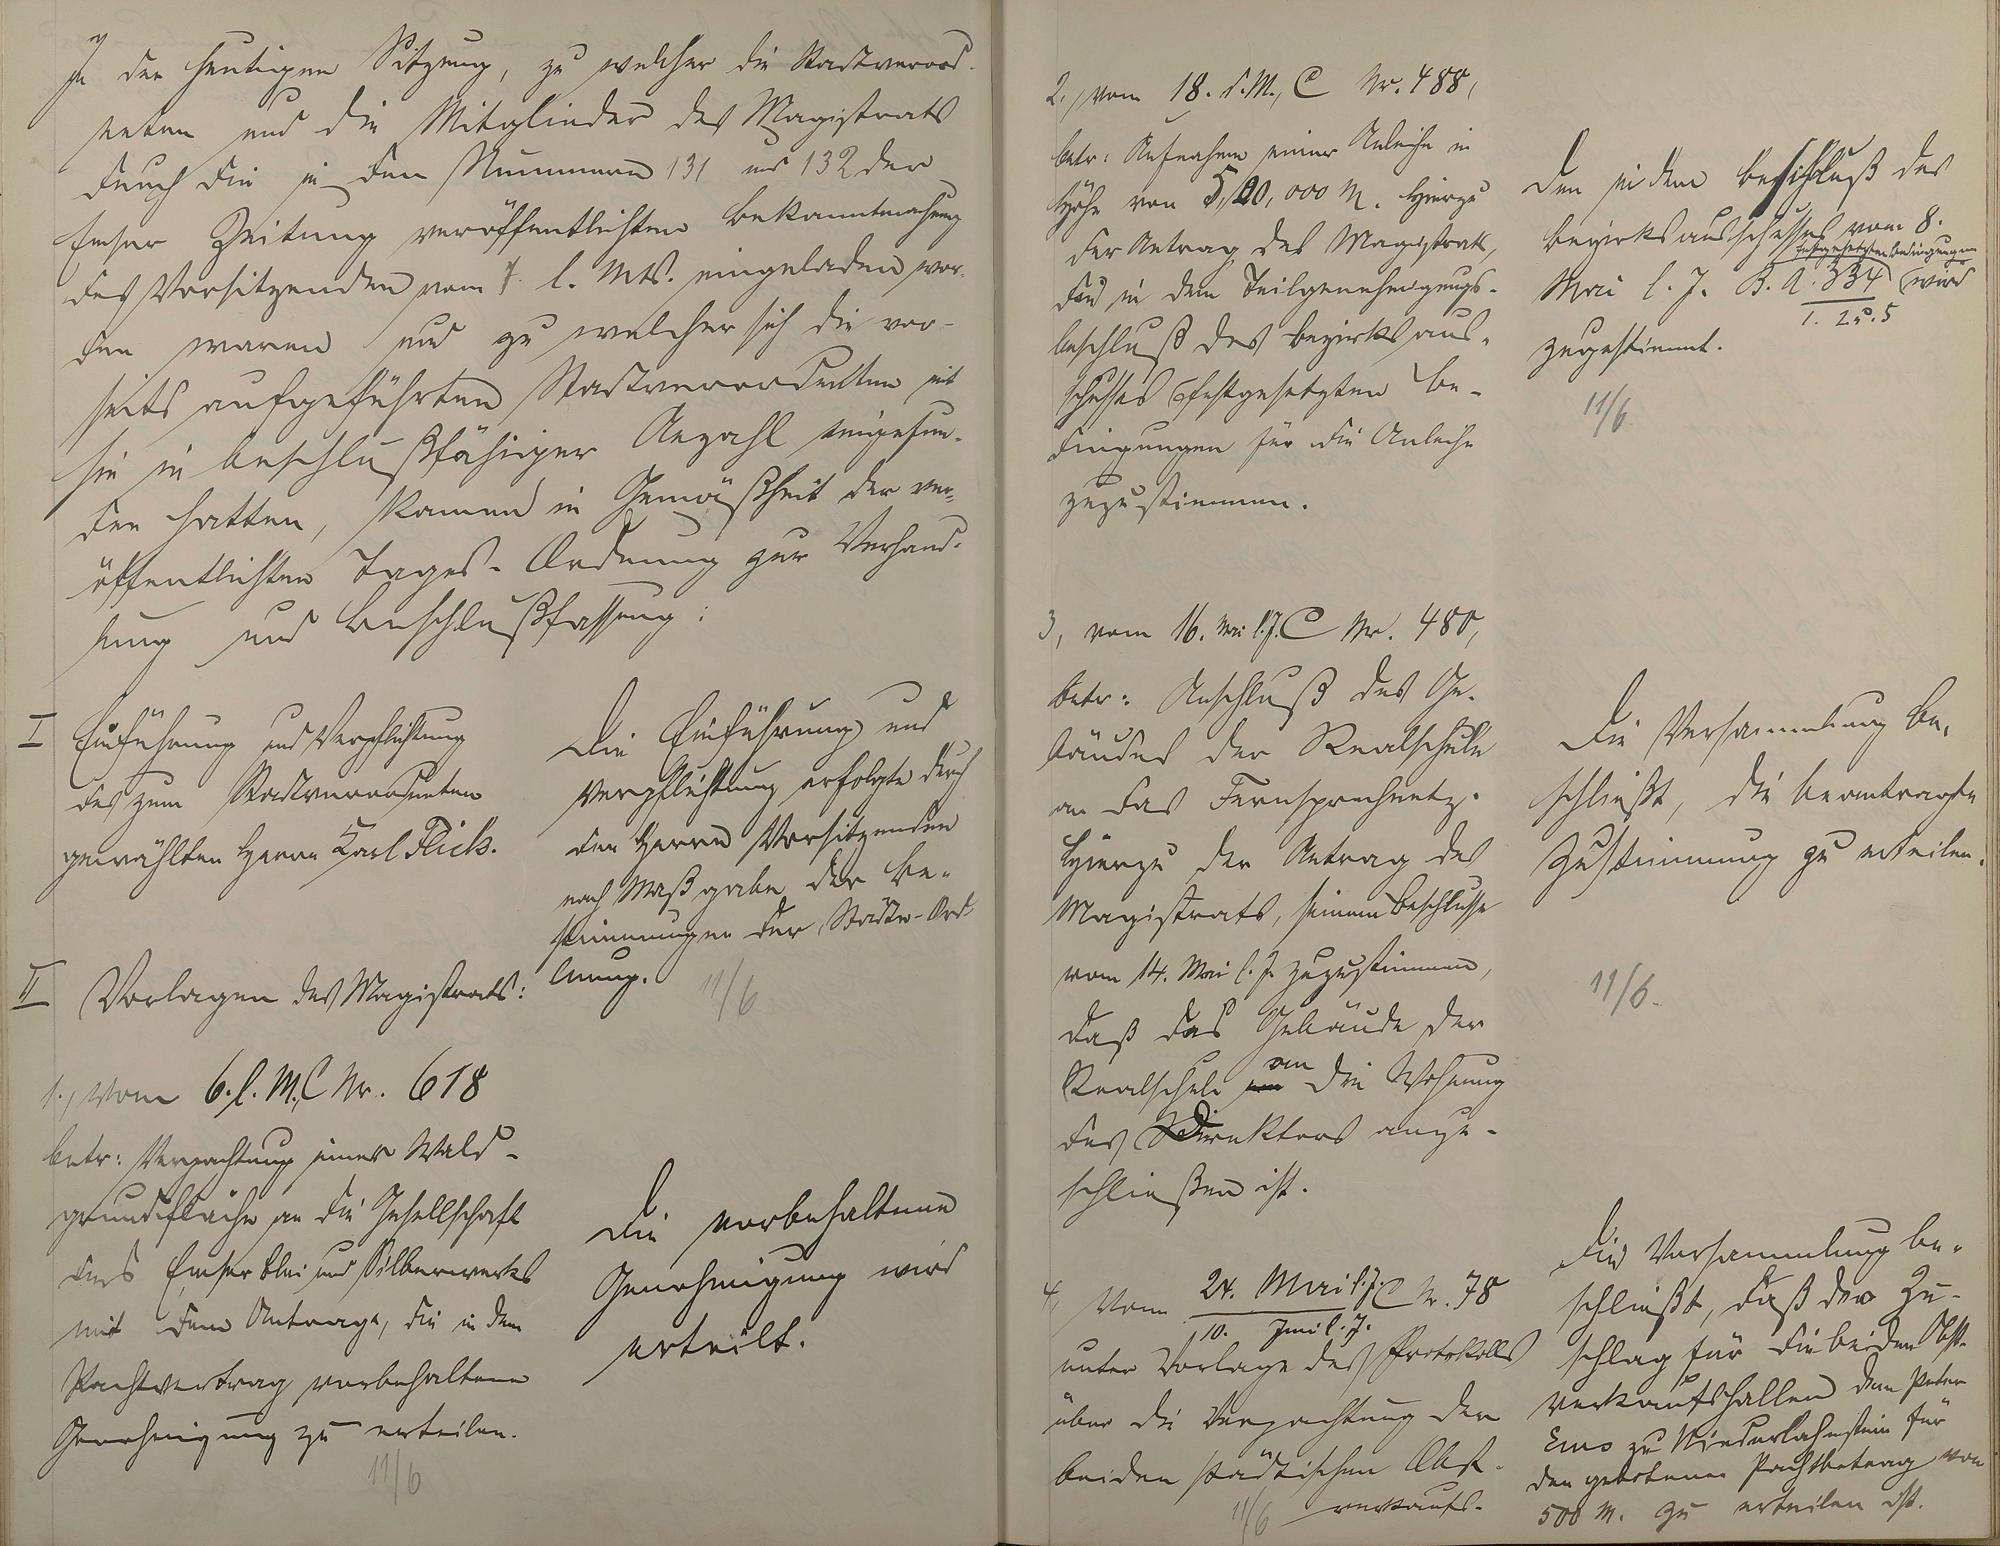 In der heutigen Sitzung, zu welcher die Stadtverord-
neten und die Mitglieder des Magistrats
durch die in den Nummern 131 und 132 der
Emser Zeitung veröffentlichten Bekanntmachung
des Vorsitzenden vom 7. l. Mts. eingeladen wor-
den waren und zu welcher sich die vor-
seits aufgeführten Stadtverordneten mit
hin in beschlußfähiger Anzahl eingefun-
den hatten, kamen in Gemäßheit der ver-
öffentlichten Tages-Ordnung zur Verhand-
lung und Beschlußfassung:
I Einführung und Verpflichtung
des zum Stadtverordneten
gewählten Herrn Karl Flick.
Die Einführung und
Verpflichtung erfolgte durch
den Herrn Vorsitzenden
nach Maßgabe der Be-
stimmungen der Städte-Ord-
nung.
11/6
II Vorlagen des Magistrats:
1., Vom 6. l. M. C Nr. 618
betr: Verpachtung einer Wald-
grundfläche an die Gesellschaft
des Emser Blei und Silberwerks
mit dem Antrage, die in dem
Pachtvertrag vorbehaltene
Genehmigung zu erteilen.
11/6
Die vorbehaltene
Genehmigung wird
erteilt.
2., vom 18. v. M., C Nr. 488,
betr: Aufnahme einer Anleihe in
Höhe von 500,000 M. Hierzu
der Antrag des Magistrats,
den in dem Teilgenehmigungs-
beschluß des Bezirksaus-
schusses festgesetzten Be-
dingungen für die Anleihe
zuzustimmen.
Den in dem Beschluß des
Bezirksausschusses vom 8.
festgesetzten Bedingungen
Mai l. J. B. A. 334 wird
1. 25.5
zugestimmt.
11/6
3, vom 16. Mai l. J. C Nr. 480,
betr: Anschluß des Ge-
bäudes der Realschule
an das Fernsprechnetz.
Hierzu der Antrag des
Magistrats, seinem Beschlusse
vom 14. Mai l. J. zuzustimmen,
daß das Gebäude der
Realschule an die Wohnung
des Direktors ange-
schließen ist.
Die Versammlung be-
schließt, die beantragte
Zustimmung zu erteilen.
11/6.
4, Vom 24. Mai l. J. C Nr. 78
10. Juni l. J.
unter Vorlage des Protokolls
über die Verpachtung der
beiden städtischen Obst-
verkaufs-
11/6
Die Versammlung be-
schließt, daß der Zu-
schlag für die beiden Obst-
verkaufshallen dem Peter
Ems zu Niederlahnstein für
den gebotenen Pachtbetrag von
500 M. zu erteilen ist.